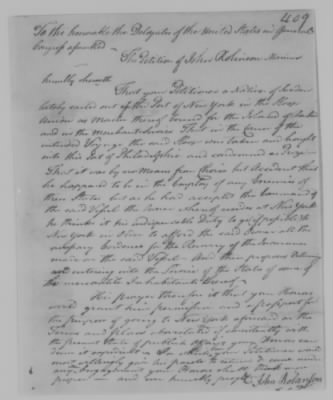 409
To the honorable the Delegates of the United States in General
Congress assembled
The Petition of John Robinson Mariner
humbly sheweth
That your Petitioner a Native of Sweden
lately sailed out of the Port of New York in the Sloop
as Master thereof bound for the Island of
and in the merchant Service That in the Course of the
intended Voyage the said Sloop was taken and brought
into this Port of Philadelphia and condemned as Prize
That it was by no Means from choice but Accident that
he happened to be in the Employ of any Enemies of
these States but as he had accepted the Command of
the said Vessel the Owner whereof resides at New York
he thinks it his indispensible Duty to go if possible to
New York in Order to afford the said Owner all the
necessary Evidence for the Recovery of the Insurance
made on the said Vessel And then proposes
entering into the Service of the States or some of
the mercantile Inhabitants thereof
His prayer therefore is that your Honours
would grant him permission and a passport for
the purpose of going to New York aforesaid on the
Terms and Places consistently with
the present State of publick Affairs your Honours can
deem it expedient
most willingly give his parole to return to
any Engagement your Honours shall think
proper and will humbly pray &c
John Robinson